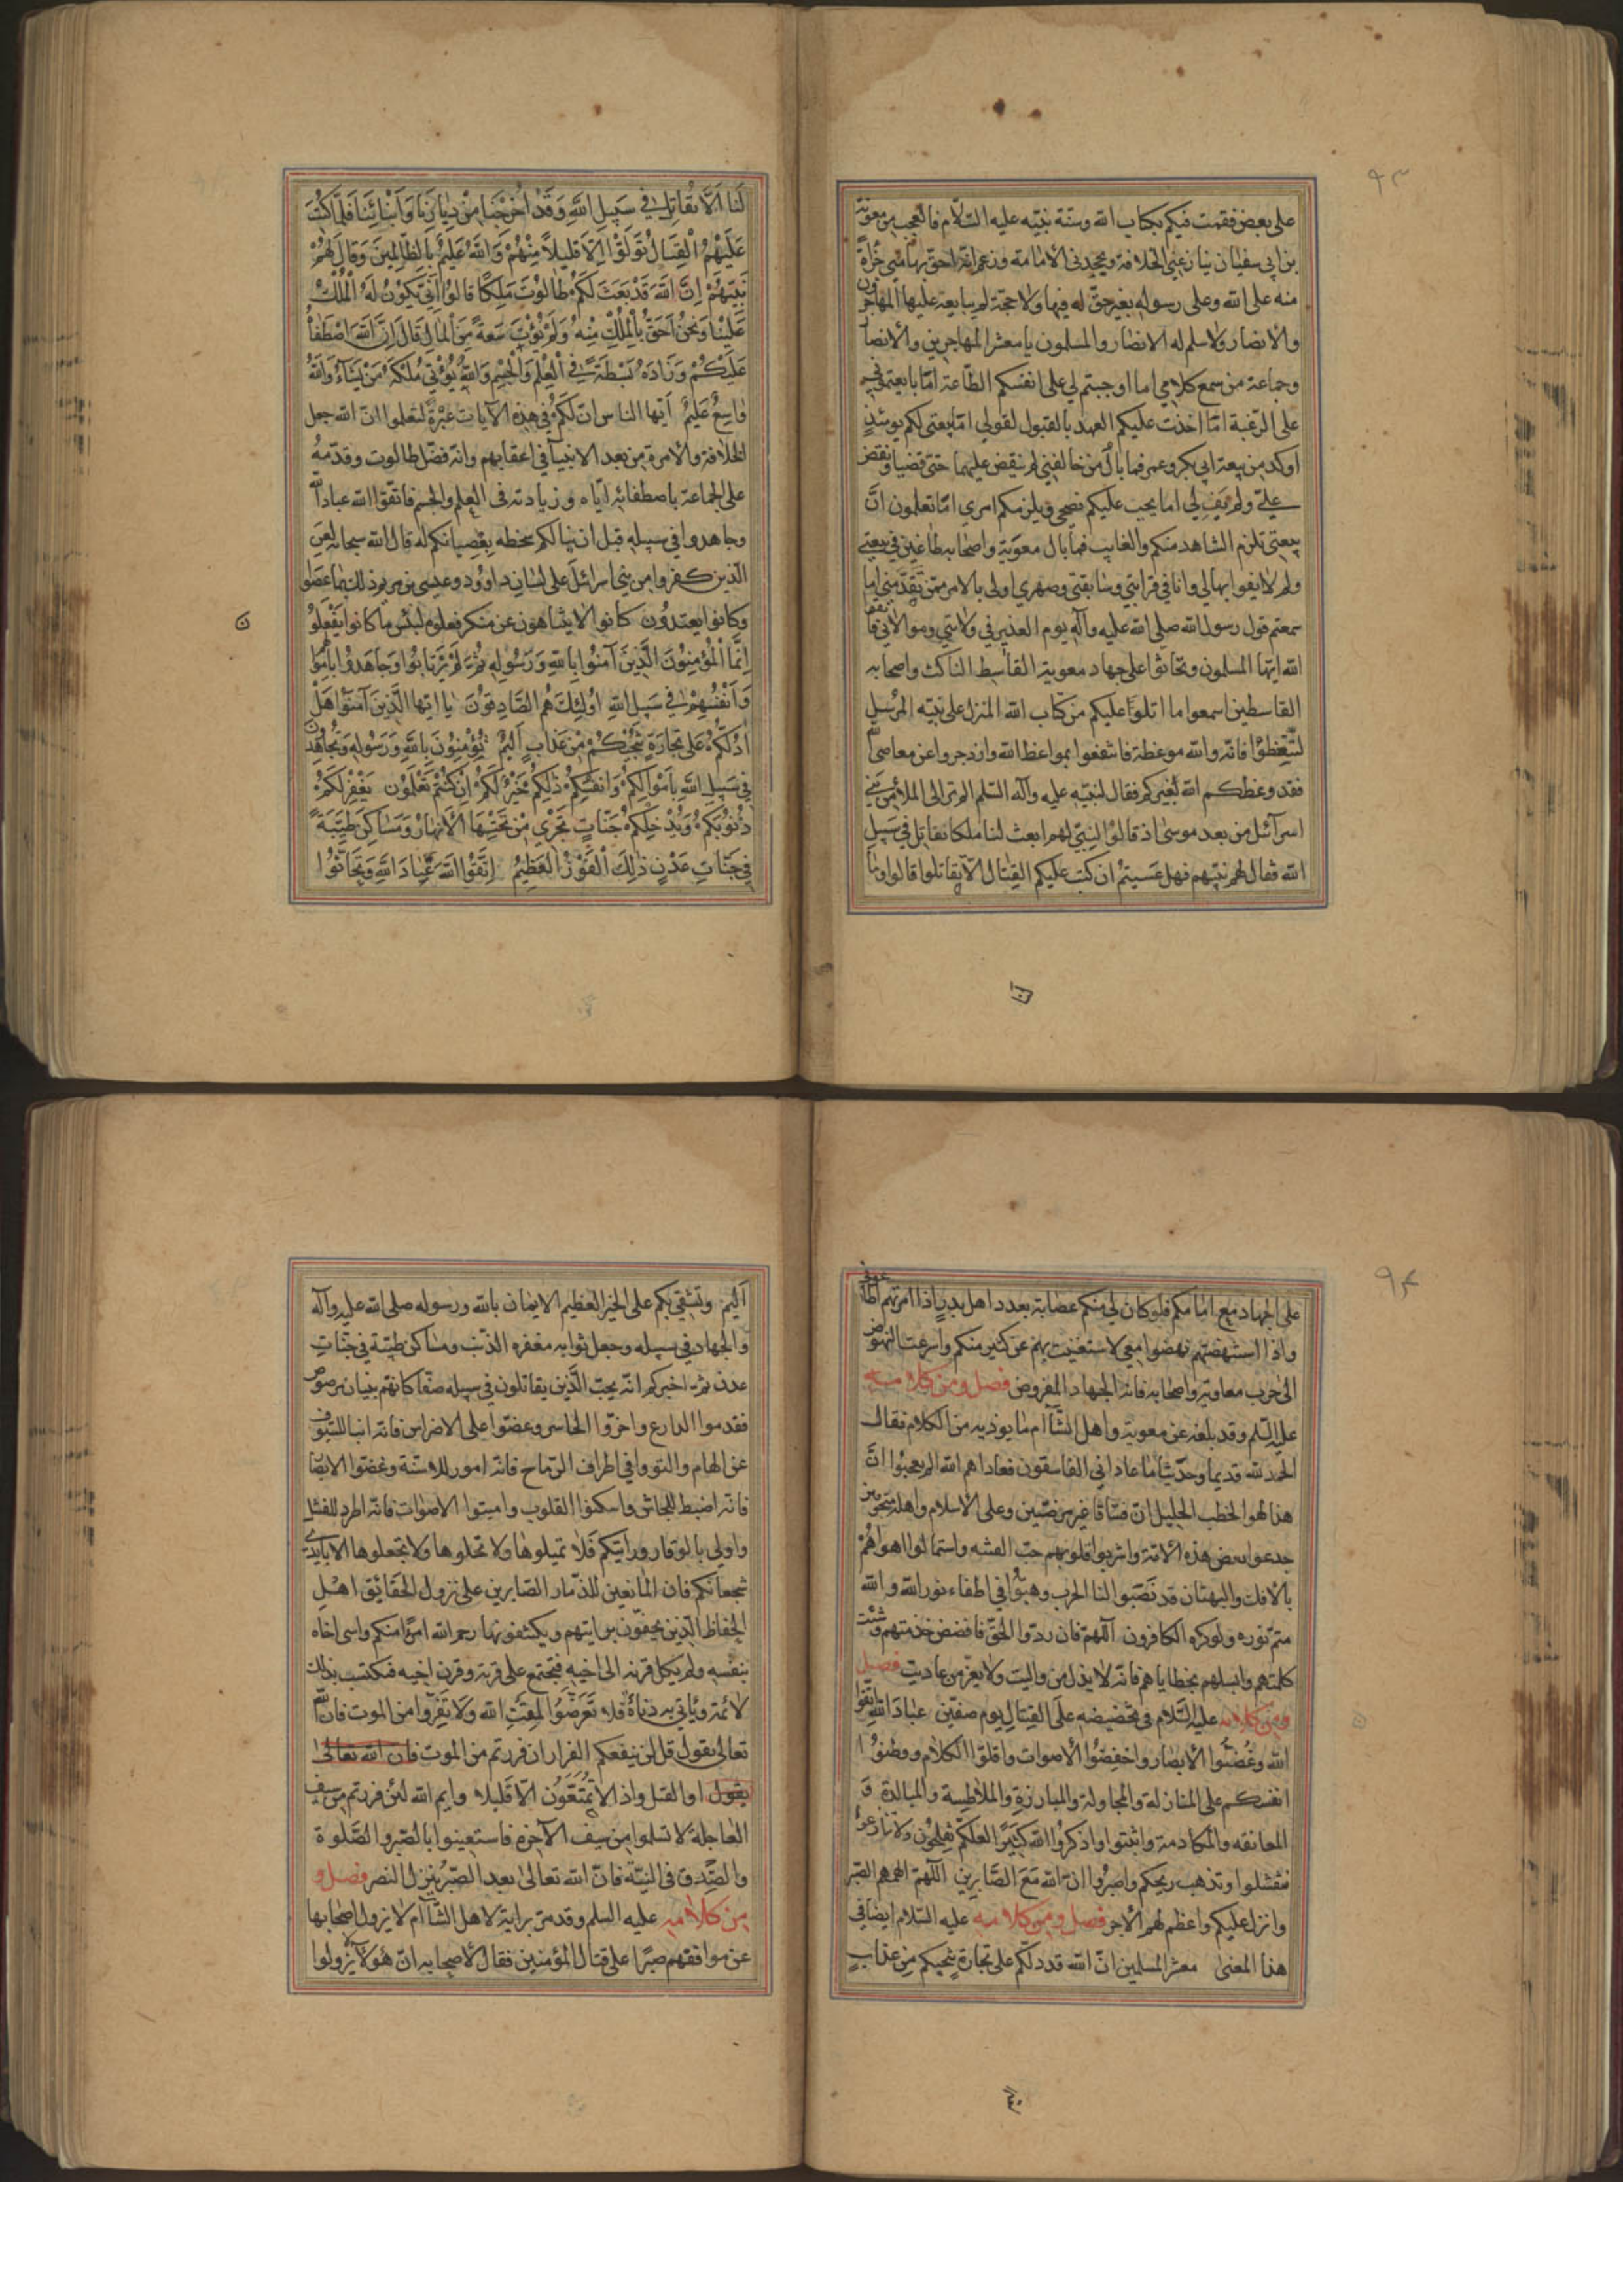 ٩٣
على بعض فقمت فيكم بكتاب الله وسنة نبيه عليه السلام فالعجب من معوية
بن ابى سفيان ينازعنى الخلافة ويجحدنى الامامة وزعم انه احق بها منى جراة
منه على الله وعلى رسوله بغير حق له فيها ولا حجة لم يبايعه عليها المهاجرون
والانصار ولا سلم له الانصار والمسلمون يا معشر المهاجرين والانصار
وجماعة من سمع كلامي اما اوجبتم لي على انفسكم الطاعة اما بايعتموني
على الرغبة اما اخذت عليكم العهد بالقبول لقولي اما بيعتى لكم يومئذ
اوكد من بيعة ابي بكر وعمر فما بال من خالفنى لم ينقض عليهما حتى قضيا ونقض
علي ولم يف لي اما يجب عليكم نصحي ويلزمكم امري اما تعلمون ان
بيعتى تلزم الشاهد منكم والغايب فما بال معوية واصحابه طاغين في بيعتى
ولم لا يفوا بها لي وانا في قرابتي وسابقتي وصهري اولى بالامر ممن تقدمني اما
سمعتم قول رسول الله صلى الله عليه وآله يوم الغدير في ولايتي وموالاتي فاتقوا
الله ايها المسلمون وتحاثوا على جهاد معوية القاسط الناكث واصحابه
القاسطين اسمعوا ما اتلوا عليكم من كتاب الله المنزل على نبيه المرسل
لتتعظوا فانه والله موعظة فانتفعوا بمواعظ الله وازدجروا عن معاصى الله
فقد وعظكم الله بغيركم فقال لنبيه عليه وآله السلم الم تر الى الملأ من بني
اسرآئيل من بعد موسى اذ قالوا لنبي لهم ابعث لنا ملكا نقاتل في سبيل
الله فقال لهم نبيهم فهل عسيتم ان كتب عليكم القتال الا تقاتلوا قالوا وما
لنا الا نقاتل في سبيل الله وقد اخرجنا من ديارنا وابنائنا فلما كتب
عليهم القتال تولوا الا قليلا منهم والله عليم بالظالمين وقال لهم
نبيهم ان الله قد بعث لكم طالوت ملكا قالوا انى يكون له الملك
علينا ونحن احق بالملك منه ولم يؤت سعة من المال قال ان الله اصطفاه
عليكم وزاده بسطة في العلم والجسم والله يؤتي ملكه من يشآء والله
واسع عليم ايها الناس ان لكم في هذه الآيات عبرة لتعلموا ان الله جعل
الخلافة والامرة من بعد الانبيآ في اعقابهم وانه فضل طالوت وقدمه
على الجماعة باصطفائه اياه وزيادته فى العلم والجسم فاتقوا الله عباد الله
وجاهدوا في سبيله قبل ان ينالكم سخطه بعصيانكم له قال الله سبحانه لعن
الذين كفروا من بني اسرائل على لسان داوود وعيسى بن مريم ذلك بما عصوا
وكانوا يعتدون كانوا لا يتناهون عن منكر فعلوه لبئس ما كانوا يفعلو
انما المؤمنون الذين آمنوا بالله ورسوله ثم لم يرتابوا وجاهدوا باموالهم
وانفسهم في سبيل الله اولئك هم الصادقون يا ايها الذين آمنوا هل
ادلكم على تجارة تنجيكم من عذاب اليم تؤمنون بالله ورسوله وتجاهدون
في سبيل الله باموالكم وانفسكم ذلكم خير لكم ان كنتم تعلمون يغفر لكم
ذنوبكم ويدخلكم جنات تجري من تحتها الانهار ومساكن طيبة
في جنات عدن ذلك الفوز العظيم اتقوا الله عباد الله وتحاثوا
٩٤
على الجهاد مع امامكم فلو كان لي منكم عصابة بعدد اهل بدر اذا امرتهم اطاعوني
واذا استنهضتهم نهضوا معي لاستغنيت بهم عن كثير منكم واسرعت النهوض
الى حرب معاوية واصحابه فانه الجهاد المفروض فصل ومن كلامه
عليه السلم وقد بلغه عن معوية واهل الشآم ما يوذيه من الكلام فقال
الحمد لله قديما وحديثا ما عاداني الفاسقون فعاداهم الله الم تعجبوا ان
هذا لهو الخطب الجليل ان فساقا غير مرضيين وعلى الاسلام واهله متخوفين
خدعوا بعض هذه الامة واشربوا قلوبهم حب الفتنه واستمالوا اهواءهم
بالافك والبهتان قد نصبوا لنا الحرب وهبوا في اطفاء نور الله والله
متم نوره ولو كره الكافرون اللهم فان ردوا الحق فافضض خدمتهم وشتت
كلمتهم وابسلهم بخطاياهم فانه لا يذل من واليت ولا يعز من عاديت فصل
ومن كلامه عليه السلام في تحضيضه على القتال يوم صفين عباد الله اتقوا
الله وغضوا الابصار واخفضوا الاصوات واقلوا الكلام ووطنوا
انفسكم على المنازلة والمجاولة والمبارزة والملاطسة والمبالدة و
المعانقه والمكادمة واثبتوا واذكروا الله كثيرا لعلكم تفلحون ولا تنازعوا
فتفشلوا وتذهب ريحكم واصبروا ان الله مع الصابرين اللهم الهمهم الصبر
وانزل عليكم واعظم لهم الاجر فصل ومن كلامه عليه السلام ايضا في
هذا المعنى معشر المسلمين ان الله قد دلكم على تجارة تنجيكم من عذاب
اليم وتشفي بكم على الخير العظيم الايمان بالله ورسوله صلى الله عليه وآله
والجهاد في سبيله وجعل ثوابه مغفرة الذنب ومساكن طيبة في جنات
عدن ثم اخبركم انه يحب الذين يقاتلون في سبيله صفا كانهم بنيان مرصوص
فقدموا الدارع واخروا الحاسر وعضوا على الاضراس فانه انبا للسيوف
عن الهام والتووا في اطراف الرماح فانه امور للاسنة وغضوا الابصا
فانه اضبط للجاش واسكن للقلوب واميتوا الاصوات فانه اطرد للفشل
واولى بالوقار ورايتكم فلا تميلوها ولا تخلوها ولا تجعلوها الا بايدي
شجعانكم فان المانعين للذمار الصابرين على نزول الحقائق اهل
الحفاظ الذين يحفون برايتهم ويكشفونها رحم الله امرا منكم واسى اخاه
بنفسه ولم يكل قرنه الى اخيه فيجتمع على قرنه وقرن اخيه فيكتسب بذلك
لائمة وياتي به دناءة فلا تعرضوا لمقت الله ولا تفروا من الموت فان الله
تعالى يقول قل لن ينفعكم الفرار ان فررتم من الموت فان الله تعالى
يقول او القتل واذا لا تمتعون الا قليلا وايم الله لئن فررتم من سيف
العاجلة لا تسلموا من سيف الآخرة فاستعينوا بالصبر والصلوة
والصدق في النية فان الله تعالى بعد الصبر ينزل النصر فصل و
من كلامه عليه السلم وقد مر براية لاهل الشآم لا يزول اصحابها
عن مواقفهم صبرا على قتال المؤمنين فقال لاصحابه ان هؤلآء لا يزولوا